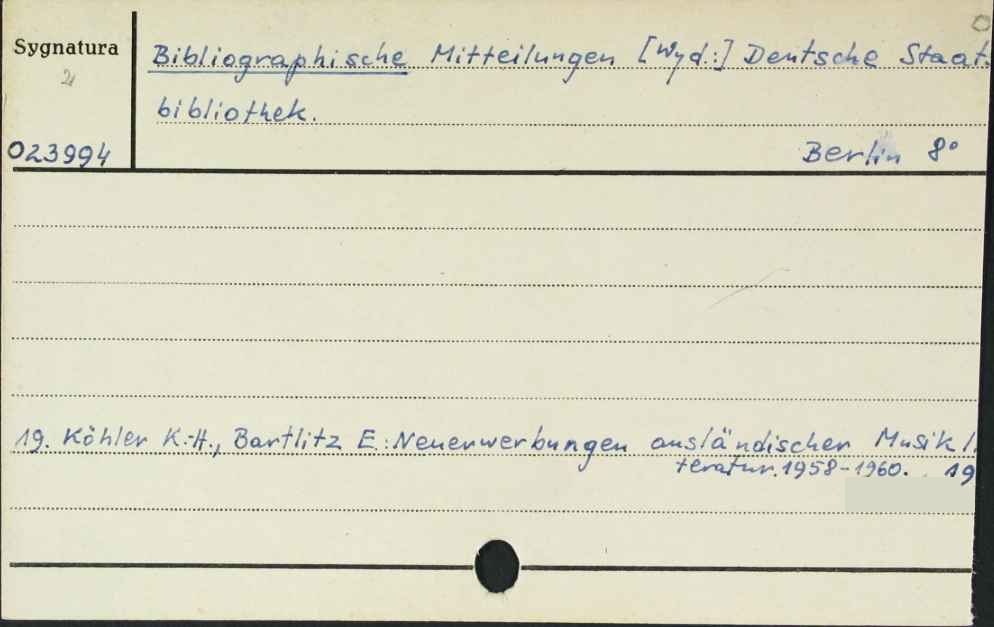 Sygnatura
Bibliographische Mitteilungen [Wyd.:] Deutsche Staat
bibliothek.
023994
Berlin 8°
19. Köhler K.-H., Bartlitz E.: Neuerwerbungen ausländischer Musikl.
teratur. 1958-1960. 19